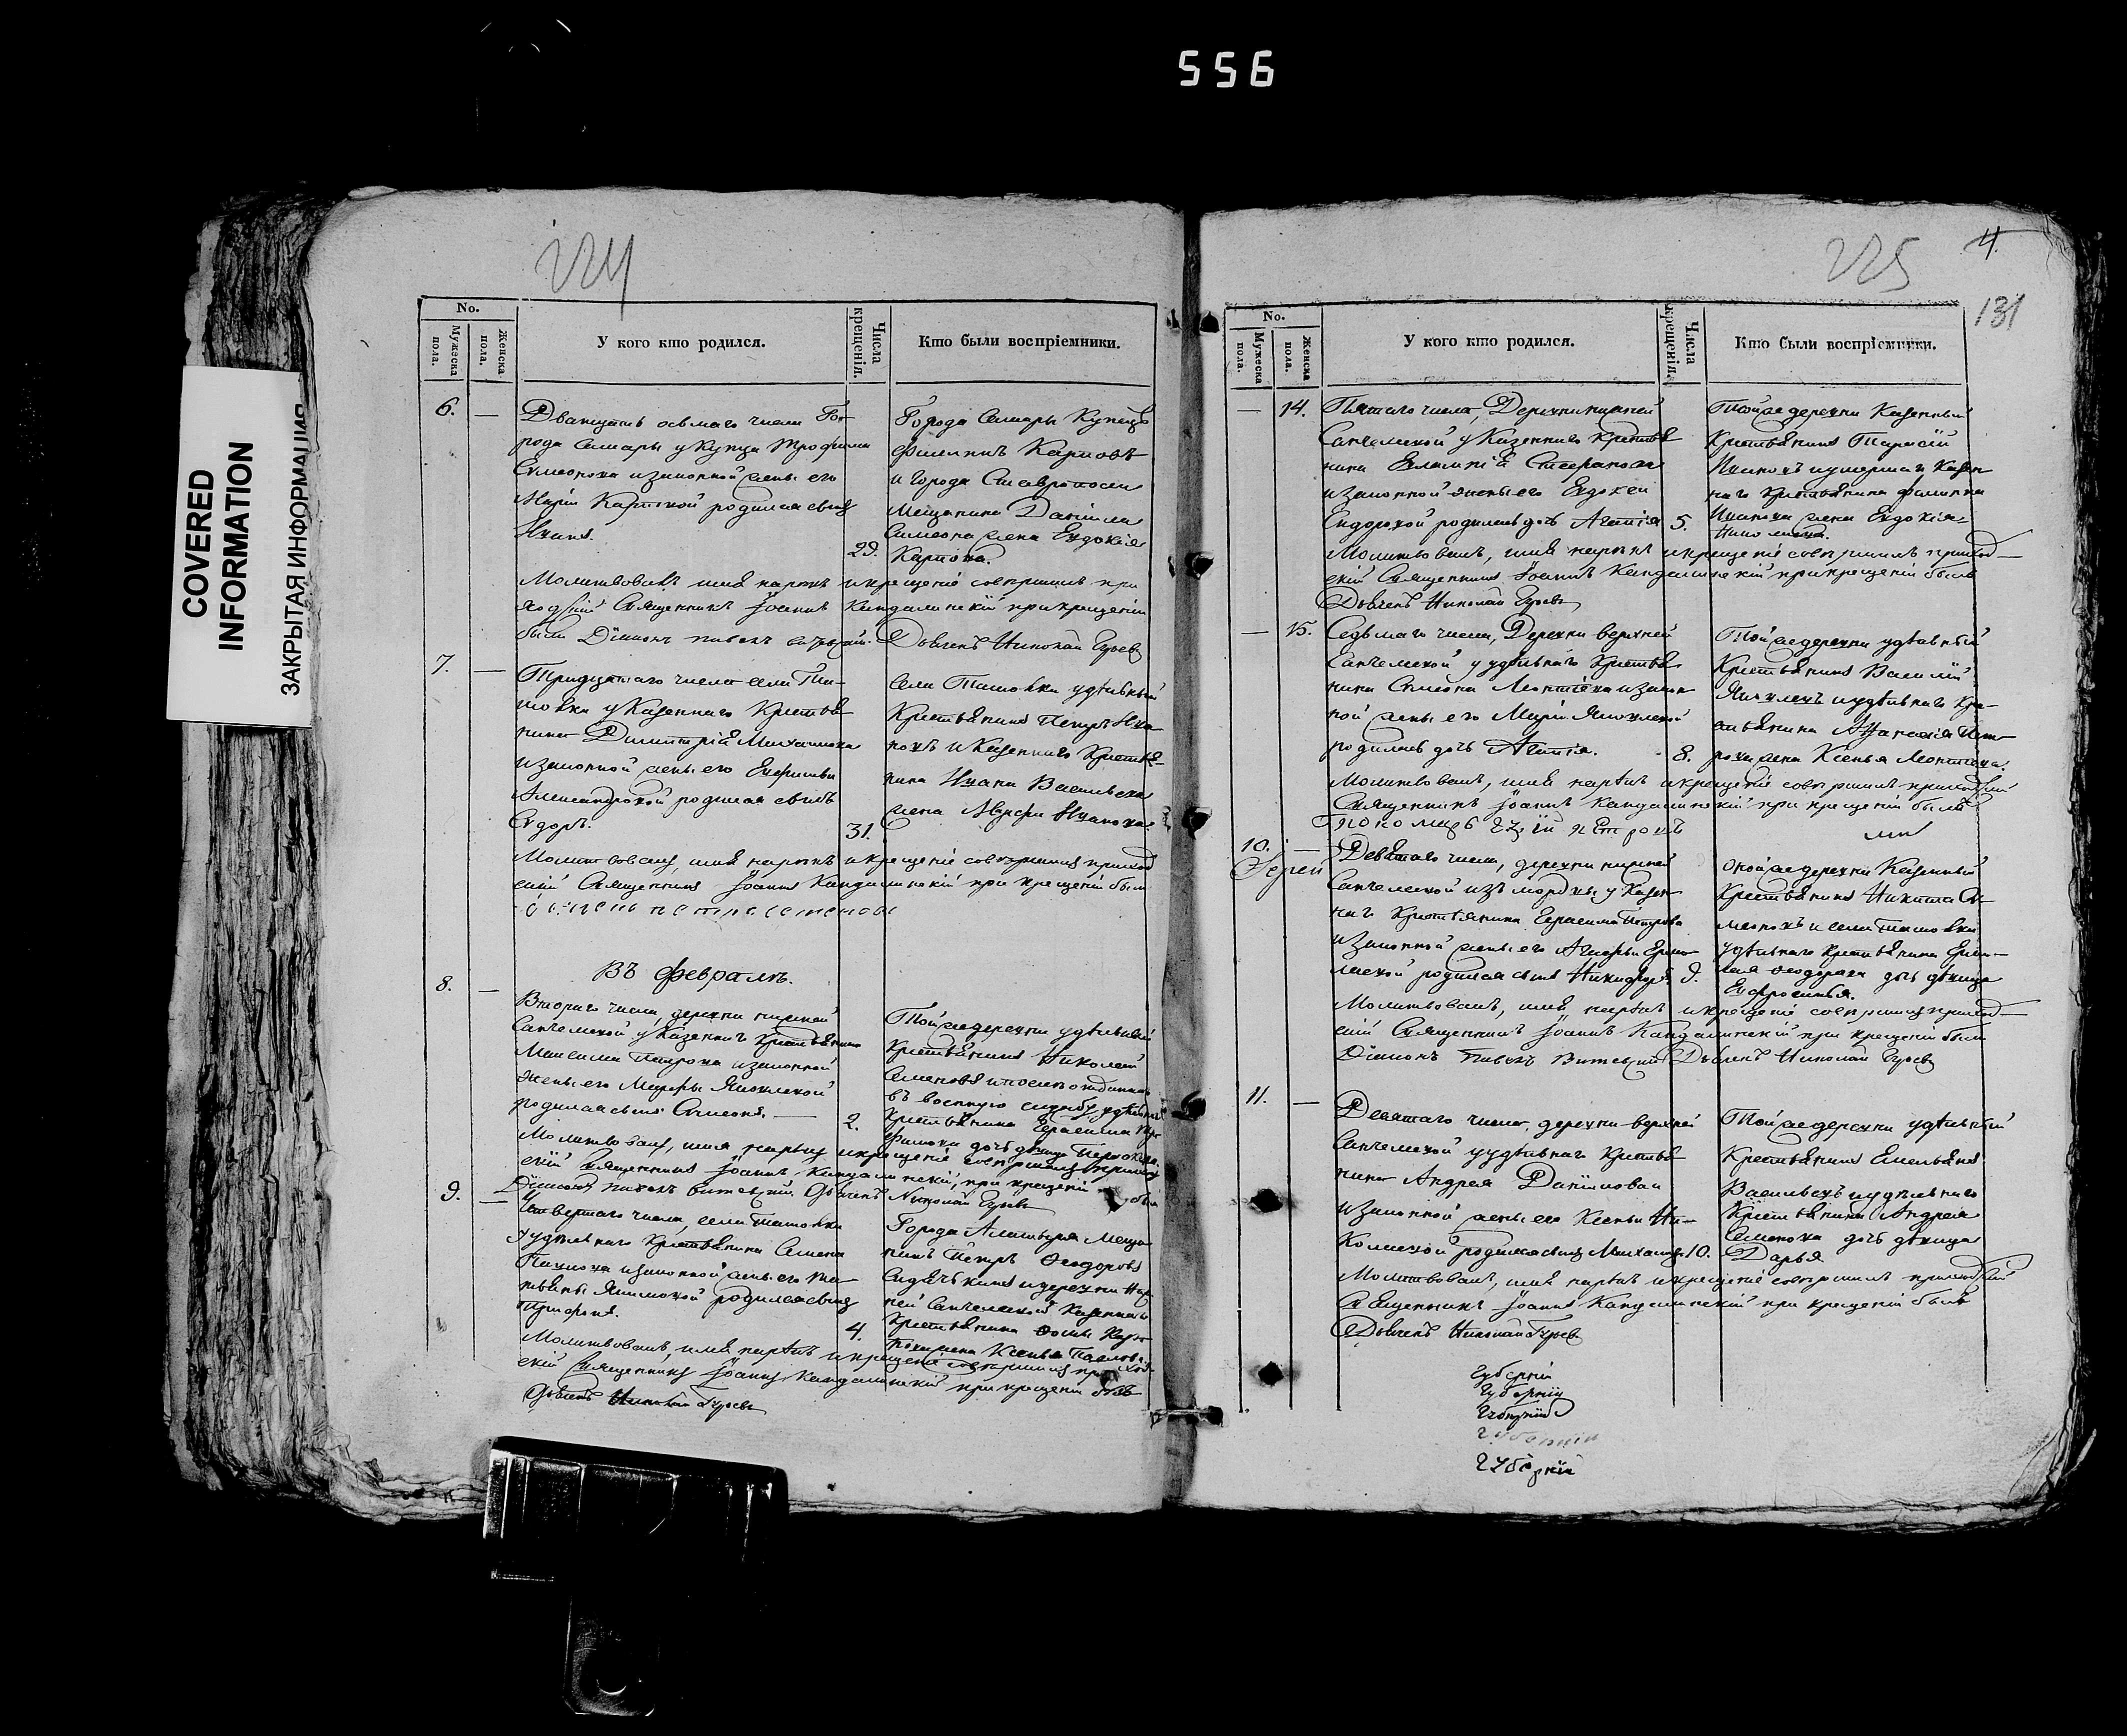 556
COVERED
INFORMATION
ЗАКРЫТАЯ ИНФОРМАЦИЯ
224
No.
Мужеска пола.
Женска пола.
У кого кто родился.
Числа крещенія.
Кто были воспріемники.
6. —
Двацать осьмаго числа Го-
рода Самары у Купца Трофима
Симеонова и законной жены его
Маріи Карповой родился сынъ
29.
Города Самары Купецъ
Филиппъ Карповъ
и города Ставрополя
Мещанина Даніила
Симеонова жена Евдокія
Карпова.
Молитвовалъ имя нарекъ и крещеніе совершилъ при
ходскій Священникъ Іоаннъ Кандалинскій при крещеніи
были Діаконъ Дьячекъ Николай Гурьевъ
7. —
Тридцатаго числа села Таш-
у Казеннаго Крестья
нина Димитрія
и законной жены его
Александровой родился сынъ
31.
Села удѣльный
Крестьянинъ Петръ Ива-
новъ и Казеннаго Крестья-
нина Ивана Васильева
жена Марфа Иванова.
Молитвовалъ, имя нарекъ и крещеніе совершилъ приход
скій Священникъ Іоаннъ Кандалинскій при крещеніи былъ
Въ февралѣ.
8. —
Втораго числа, деревни нижней
Санчелеевой у Казеннаго Крестьянина
Максима Петрова и законной
жены его Марфы Яковлевой
родился сынъ Симеонъ. —
2.
Той же деревни удѣльный
Крестьянинъ Николай
Семеновъ
въ военную службу удѣльнаго
крестьянина Герасима
дочь дѣвица
Молитвовалъ, имя нарекъ и крещеніе совершилъ приход
скій Священникъ Іоаннъ Кандалинскій, при крещеніи были
Діаконъ Дьячекъ Николай Гурьевъ
9. —
Четвертаго числа, села
у удѣльнаго Крестьянина Семена
и законной жены его Та-
тьяны родился сынъ
Трифонъ.
4.
Города Меща
нинъ Петръ Ѳеодоровъ
и деревни Ниж
ней Санчелеевой Казеннаго
Крестьянина
жена Ксенья Павлова.
Молитвовалъ, имя нарекъ и крещеніе совершилъ приход
скій Священникъ Іоаннъ Кандалинскій при крещеніи былъ
Дьячекъ Николай Гурьевъ
225
4.
131
No.
Мужеска пола.
Женска пола.
У кого кто родился.
Числа крещенія.
Кто были воспріемники.
— 14.
Пятаго числа, Деревни нижней
Санчелеевой у Казеннаго Крестья
нина Евлампія Стефанова
и законной жены его Евдокеи
родилась дочь Агапія
5.
Той же деревни Казенный
Крестьянинъ
Ивановъ и умершаго Казен
наго Крестьянина Филиппа
Иванова жена Евдокія
Молитвовалъ, имя нарекъ и крещеніе совершилъ приход—
скій Священникъ Іоаннъ Кандалинскій при крещеніи былъ
Дьячекъ Николай Гурьевъ
— 15.
Седьмаго числа, Деревни верхней
Санчелеевой у удѣльнаго Крестья
нина Симеона Леонтьева и закон
ной жены его Маріи Яковлевой
родилась дочь Агапія.
8.
Той же деревни удѣльный
Крестьянинъ Василій
Яковлевъ и удѣльнаго Кре-
стьянина Афанасія Пет-
рова жена Ксенья Леонтьева.
Молитвовалъ, имя нарекъ и крещеніе совершилъ приходскій
Священникъ Іоаннъ Кандалинскій при крещеніи былъ
Пономарь
10. —
Іерей
Девятаго числа, деревни нижней
Санчелеевой изъ мордвы у Казен
наго Крестьянина Герасима Петрова
и законной жены его Агафьи Ермо
лаевой родился сынъ Никифоръ.
9.
оной же деревни Казенный
Крестьянинъ Никита Си
меоновъ и села
удѣльнаго Крестьянина Ермо-
лая Ѳеодорова дочь дѣвица
Евфросинья.
Молитвовалъ, имя нарекъ и крещеніе совершилъ приход—
скій Священникъ Іоаннъ Кандалинскій при крещеніи были
Діаконъ Дьячекъ Николай Гурьевъ
11. —
Десятаго числа, деревни верхней
Санчелеевой у удѣльнаго Крестья
нина Андрея Даніилова
и законной жены его Ксеньи Ни-
колаевой родился сынъ Михаилъ
10.
Той же деревни удѣльный
Крестьянинъ Емельянъ
Васильевъ и удѣльнаго
Крестьянина Андрея
Семенова дочь дѣвица
Дарья
Молитвовалъ, имя нарекъ и крещеніе совершилъ приходскій
Священникъ Іоаннъ Кандалинскій при крещеніи былъ
Дьячекъ Николай Гурьевъ
Губерніи
Губерніи
Губерніи
Губерніи
Губерніи